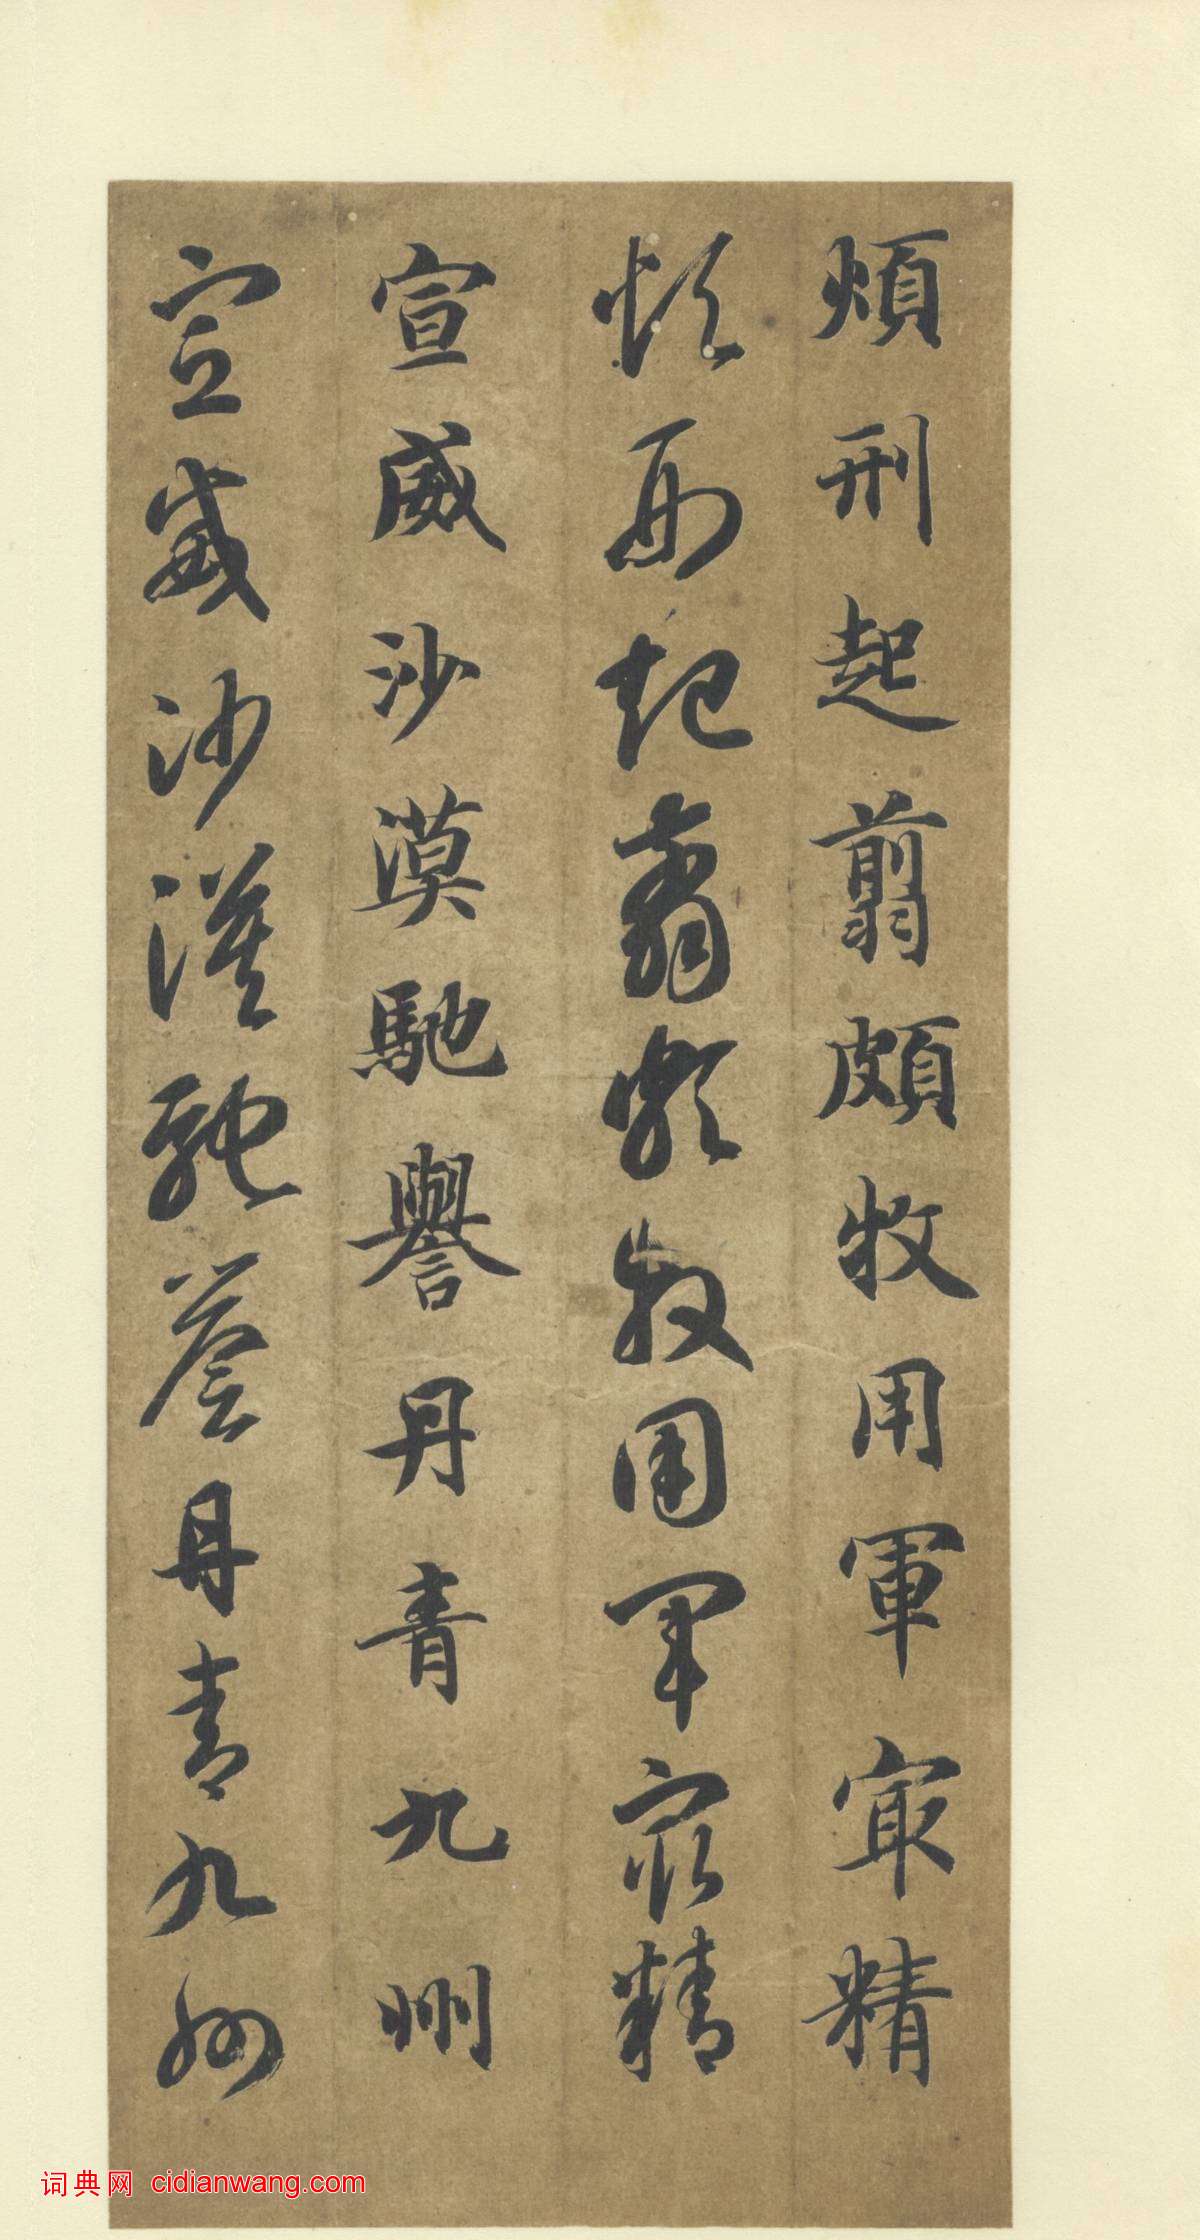 煩刑起翦頗牧用軍㝡精
煩刑起翦頗牧用軍㝡精
宣威沙漠馳譽丹青九州
宣威沙漠馳譽丹青九州
词典网 cidianwang.com